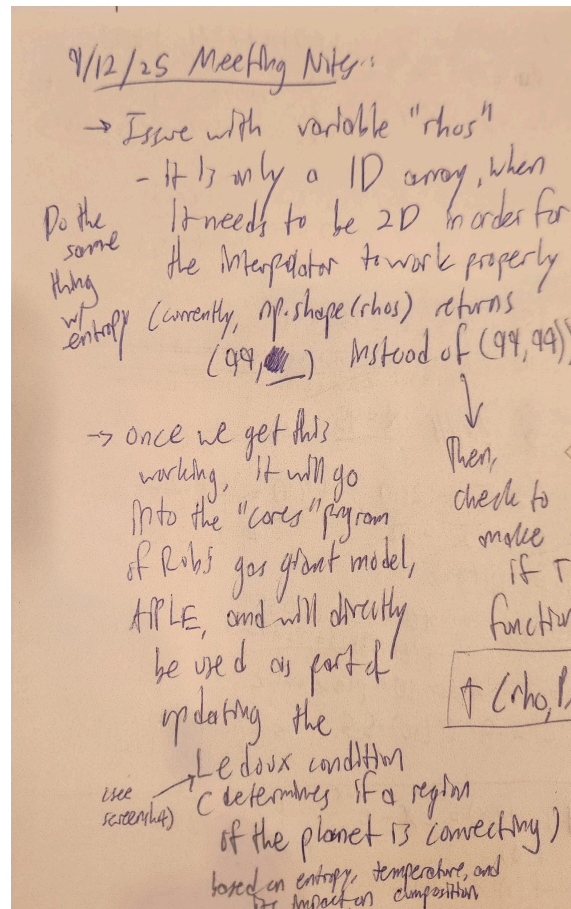 9/12/25 Meeting Notes:
→ Issue with variable "rhos"
- It is only a 1D array, when
It needs to be 2D in order for
the interpolator to work properly
(currently, np.shape(rhos) returns
(99, ) instead of (99,99))
Do the
same
thing
w/
entropy
→ once we get this
working, it will go
into the "cores" program
of Rob's gas giant model,
APPLE, and will directly
be used as part of
updating the
Ledoux condition
(determines if a region
of the planet is convecting)
based on entropy, temperature, and
its impact on composition
(see
screenshot)
Then,
check to
make
if T
function
↑ (rho, P,